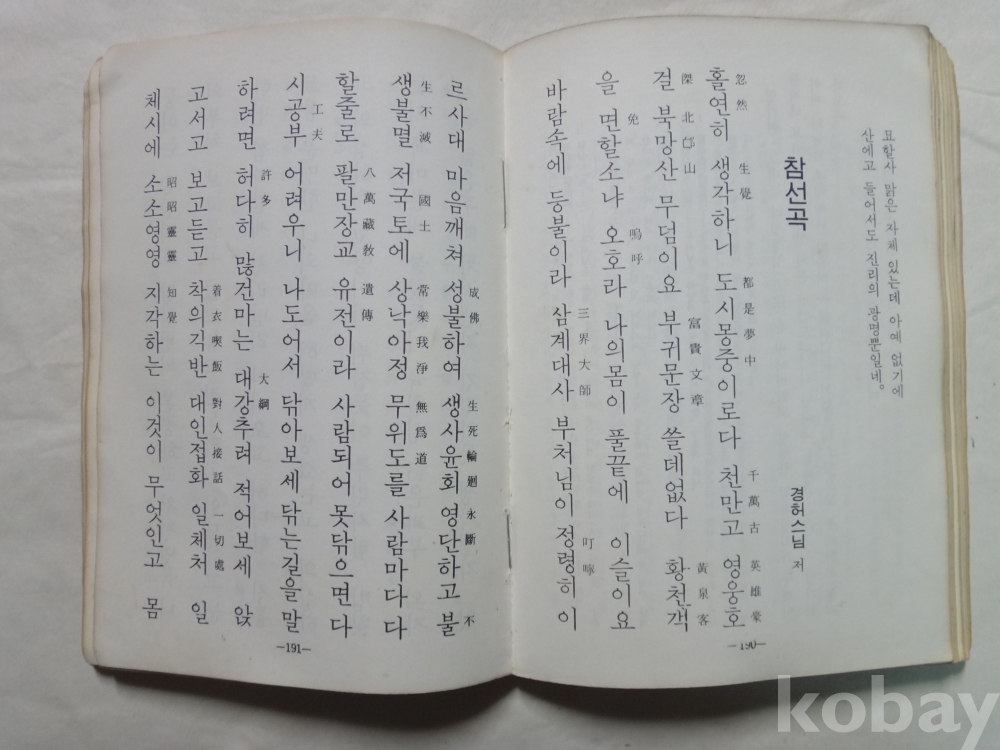 묘할사 맑은 자체 있는데 아예 없기에
산에고 들어서도 진리의 광명뿐일네。
참선곡
경허스님 저
忽然 生覺 都是夢中 千萬古 英雄豪
홀연히 생각하니 도시몽중이로다 천만고 영웅호
傑 北邙山 富貴文章 黃泉客
걸 북망산 무덤이요 부귀문장 쓸데없다 황천객
免 嗚呼
을 면할소냐 오호라 나의몸이 풀끝에 이슬이요
三界大師 叮嚀
바람속에 등불이라 삼계대사 부처님이 정령히 이
—190—
成佛 生死輪廻 永斷 不
르사대 마음깨쳐 성불하여 생사윤회 영단하고 불
生不滅 國土 常樂我淨 無爲道
생불멸 저국토에 상낙아정 무위도를 사람마다 다
八萬藏敎 遺傳
할줄로 팔만장교 유전이라 사람되어 못닦으면 다
工夫
시공부 어려우니 나도어서 닦아보세 닦는길을 말
許多 大綱
하려면 허다히 많건마는 대강추려 적어보세 앉
着衣喫飯 對人接話 一切處
고서고 보고듣고 착의긱반 대인접화 일체처 일
昭昭靈靈 知覺
체시에 소소영영 지각하는 이것이 무엇인고 몸
—191—
kobay